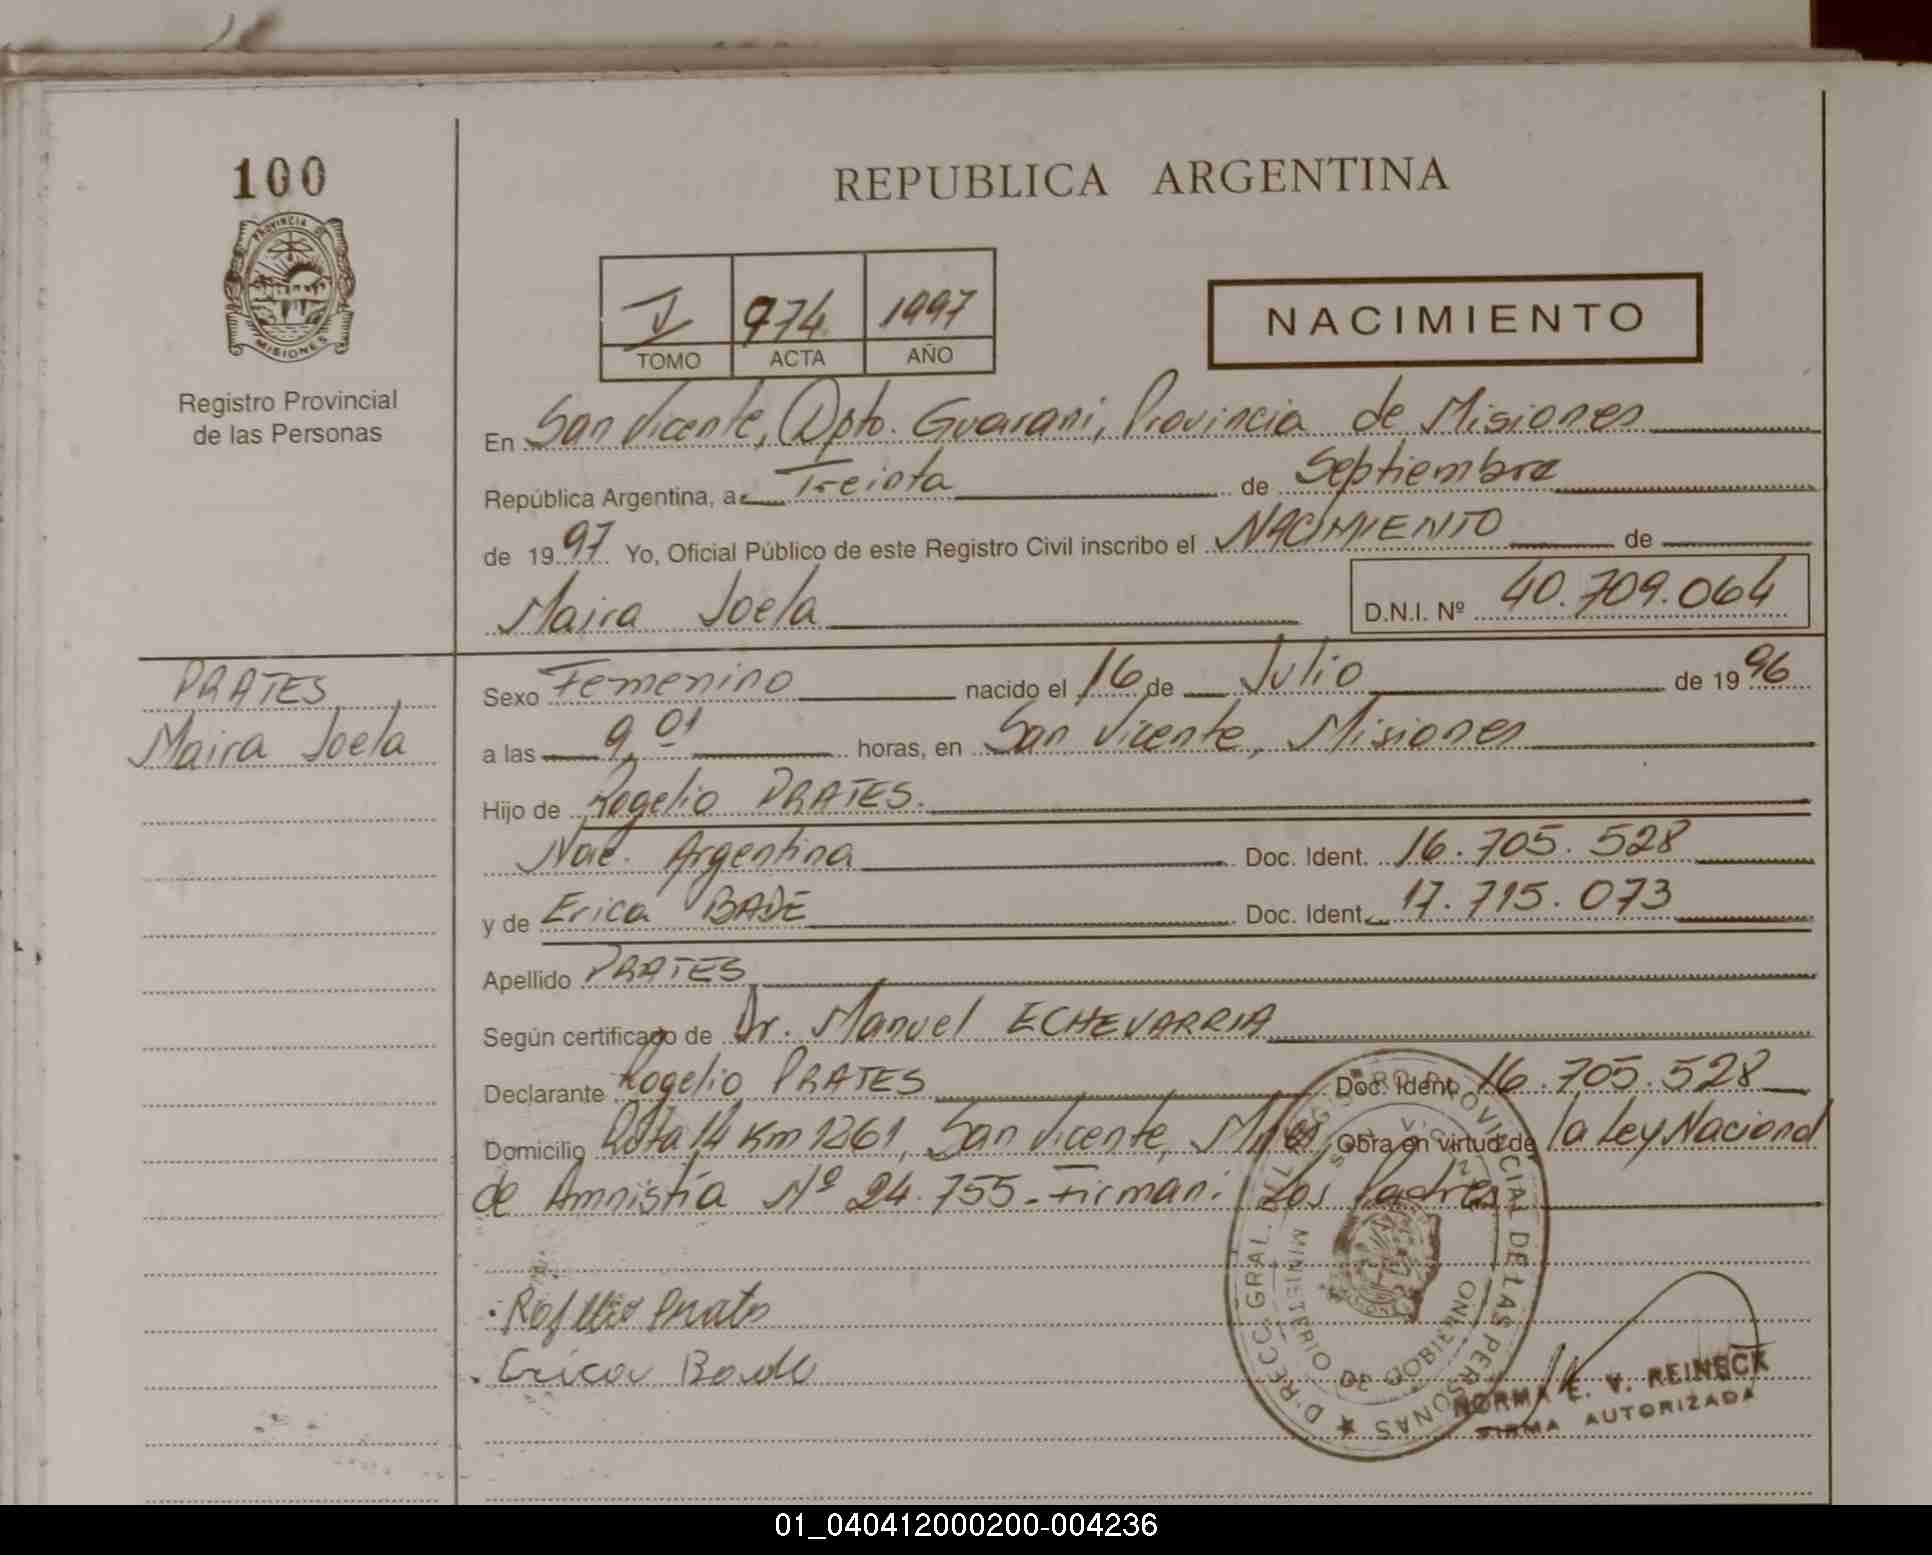 100
PROVINCIA DE
MISIONES
Registro Provincial
de las Personas
REPUBLICA ARGENTINA
974 1997
TOMO ACTA AÑO
NACIMIENTO
En San Vicente, Dpto. Guarani, Provincia de Misiones
República Argentina, a Treinta de Septiembre
de 1997 Yo, Oficial Público de este Registro Civil inscribo el NACIMIENTO de
Maira Joela D.N.I. Nº 40.709.064
PRATES
Maira Joela
Sexo Femenino nacido el 16 de Julio de 1996
a las 9,01 horas, en San Vicente, Misiones
Hijo de Rogelio PRATES.
Nac. Argentina Doc. Ident. 16.705.528
y de Erica BADE Doc. Ident. 17.715.073
Apellido PRATES
Según certificado de Dr. Manuel ECHEVARRIA
Declarante Rogelio PRATES Doc. Ident. 16.705.528
Domicilio Ruta 14 Km 1261, San Vicente, Obra en virtud de la Ley Nacional
de Amnistía Nº 24.755 - Firman: Los Padres
Erica Bade
DIRECC. GRAL. DEL REGISTRO PROVINCIAL DE LAS PERSONAS
MINISTERIO DE GOBIERNO
NORMA E. V. REINECK
FIRMA AUTORIZADA
01_040412000200-004236